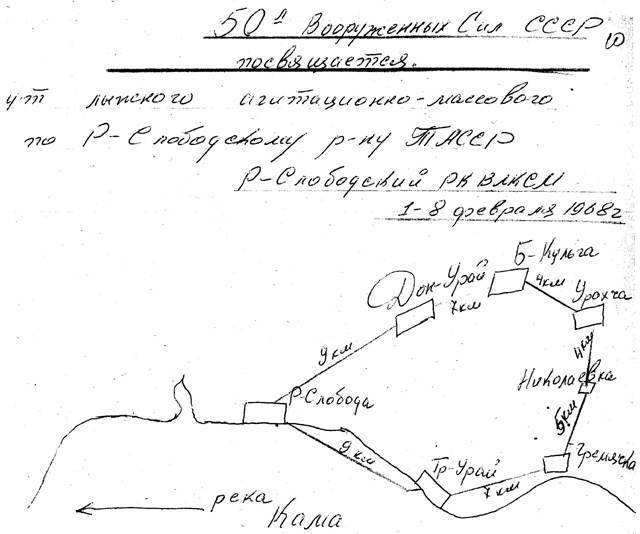 50 л Вооруженных Сил СССР
посвящается.
ут лыжского агитационно-массового
по Р-Слободскому р-ну ТАССР
Р-Слободский РК ВЛКСМ
1-8 февраля 1968г
Б-Кульга
Док-Урай
4км
7км
Урохча
9км
4км
Николаевка
Р-Слобода
5км
9км
Гр-Урай
Гремячка
7км
река
Кама